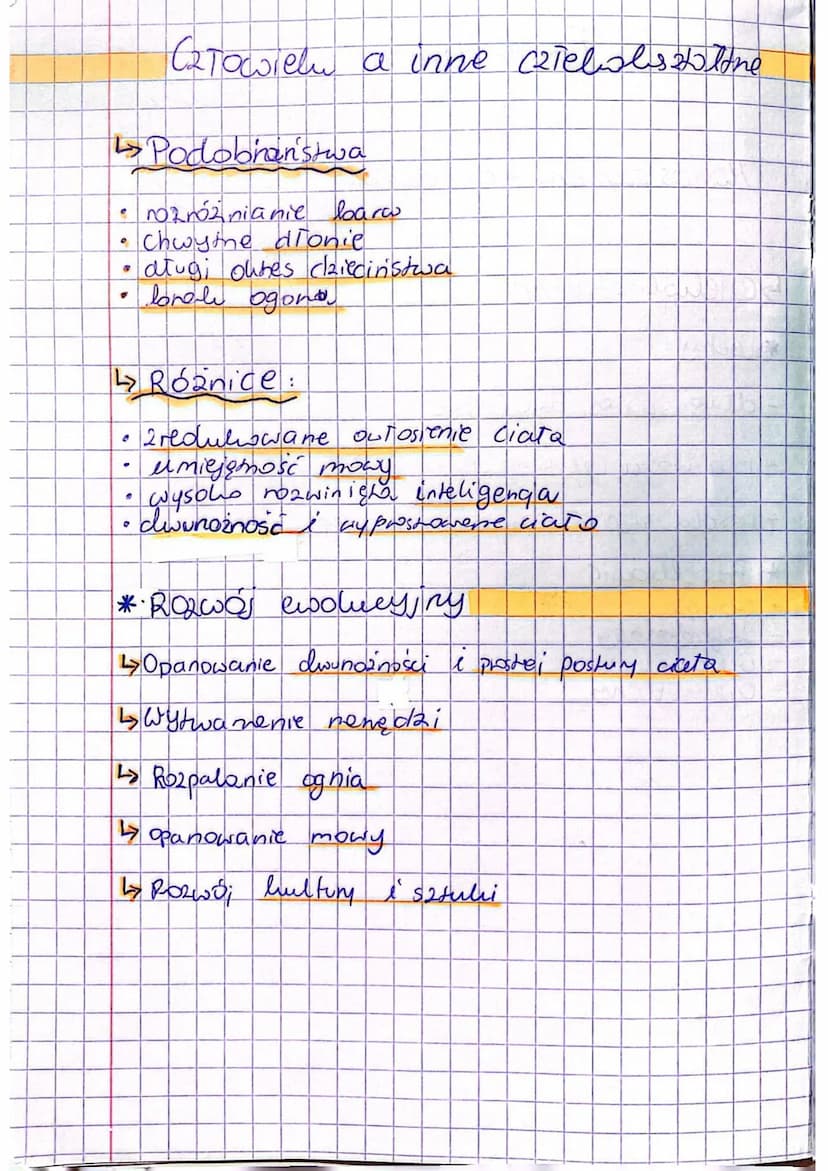 Człowiek a inne człekokształtne
↳ Podobieństwa
• rozróżnianie barw
• chwytne dłonie
• długi okres dzieciństwa
• brak ogona
↳ Różnice:
• zredukowane owłosienie ciała
• umiejętność mowy
• wysoko rozwinięta inteligencja
• dwunożność i wyprostowane ciało
* Rozwój ewolucyjny
↳ Opanowanie dwunożności i prostej postury ciała
↳ Wytwarzanie narzędzi
↳ Rozpalanie ognia
↳ opanowanie mowy
↳ Rozwój kultury i sztuki